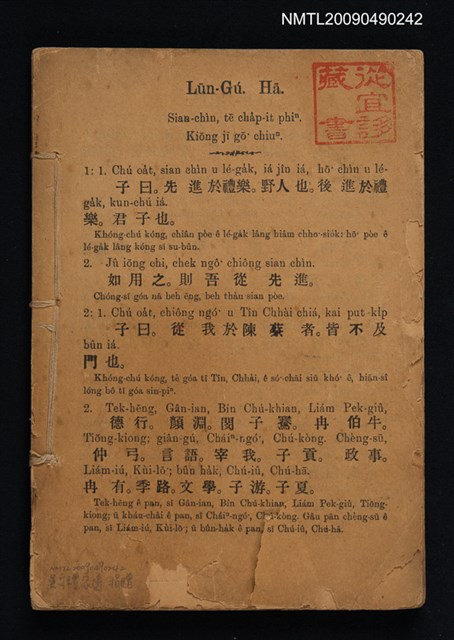 NMTL20090490242
Lūn-Gú. Hā.
Sian-chìn, tē cha̍p-it phiⁿ.
Kiōng jī gō͘ chiuⁿ.
1: 1. Chú oa̍t, sian chìn u lé-ga̍k, iá jîn iá, hō͘ chìn u lé-
子曰。先進於禮樂。野人也。後進於禮
ga̍k, kun-chú iá.
樂。君子也。
Khóng-chú kóng, chiân pòe ê lé-ga̍k lâng hiâm chho͘-sio̍k: hō͘ pòe ê
lé-ga̍k lâng kóng sī su-bûn.
2. Jû iōng chi, chek ngô͘ chiông sian chìn.
如用之。則吾從先進。
Chóng-sī góa nā beh ēng, beh thàn sian pòe.
2: 1. Chú oa̍t, chiông ngó͘ u Tîn Chhài chiá, kai put ki̍p
子曰。從我於陳蔡者。皆不及
bûn iá.
門也。
Khóng-chú kóng, tè góa tī Tîn, Chhài, ê só͘-chāi siū khó͘ ê, hiān-sî
lóng bô tī góa sin-piⁿ.
2. Tek-hēng, Gân-ian, Bín Chú-khian, Liám Pek-giû,
德行。顏淵。閔子騫。冉伯牛。
Tiōng-kiong; giân-gú, Cháiⁿ-ngó͘, Chú-kòng. Chèng-sū,
仲弓。言語。宰我。子貢。政事。
Liám-iú, Kùi-lō͘; bûn ha̍k, Chú-iû, Chú-hā.
冉有。季路。文學。子游。子夏。
Tek-hēng ê pan, sī Gân-ian, Bín Chú-khian, Liám Pek-giû, Tiōng-
kiong; ū kháu-châi ê pan, sī Cháiⁿ-ngó͘, Chú-kòng. Gâu pān chèng-sū ê
pan, sī Liám-iú, Kùi-lō͘; ū bûn-ha̍k ê pan, sī Chú-iû, Chú-hā.